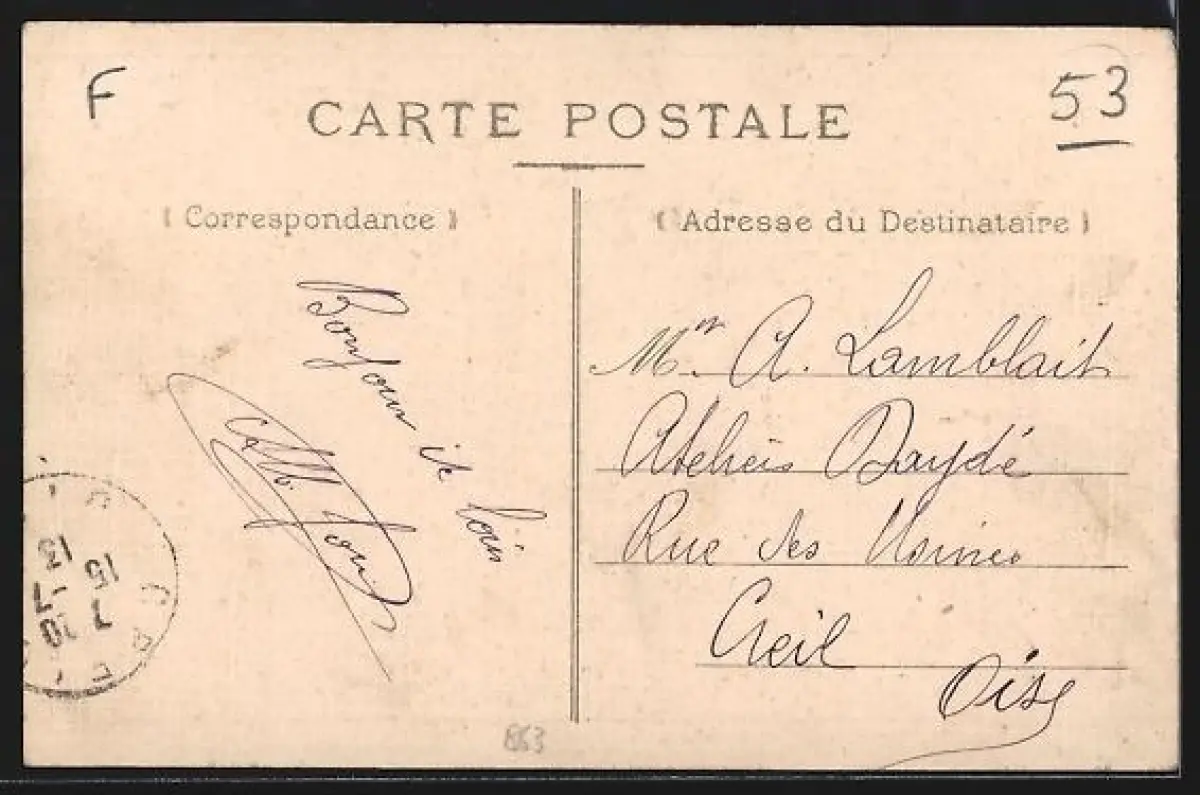 F
53
CARTE POSTALE
( Correspondance )
( Adresse du Destinataire )
Bonjour de loin
Mr. A. Lamblait
Ateliers Daydé
Rue des Usines
Creil
Oise
13
15
7
10
863